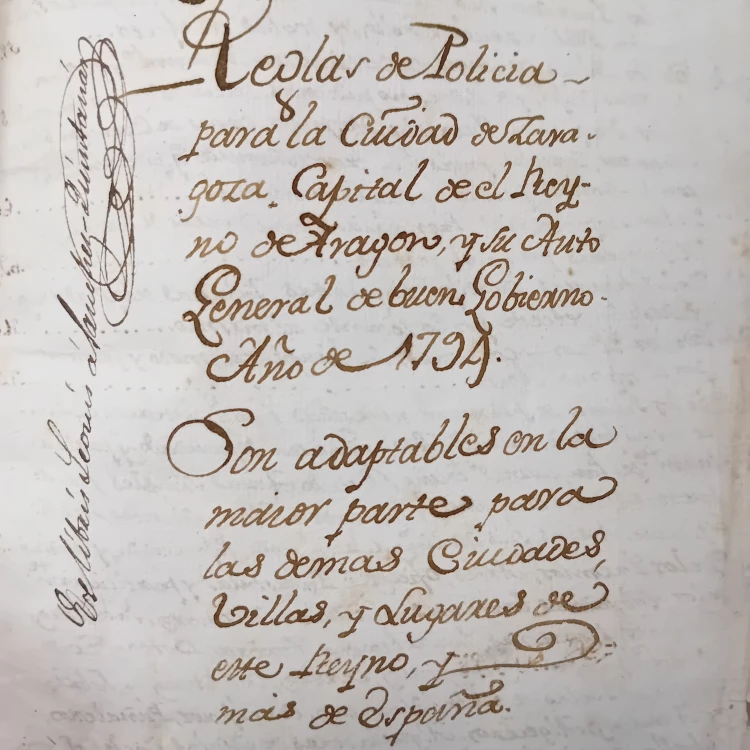 Reglas de Policia
para la Ciudad de Zara-
goza, Capital de el Rey-
no de Aragon, y su Auto
General de buen Gobierno.
Año de 1794.
Son adaptables en la
maior parte para
las demas Ciudades,
Villas, y Lugares de
este Reyno, y
mas de España.
Ex libris